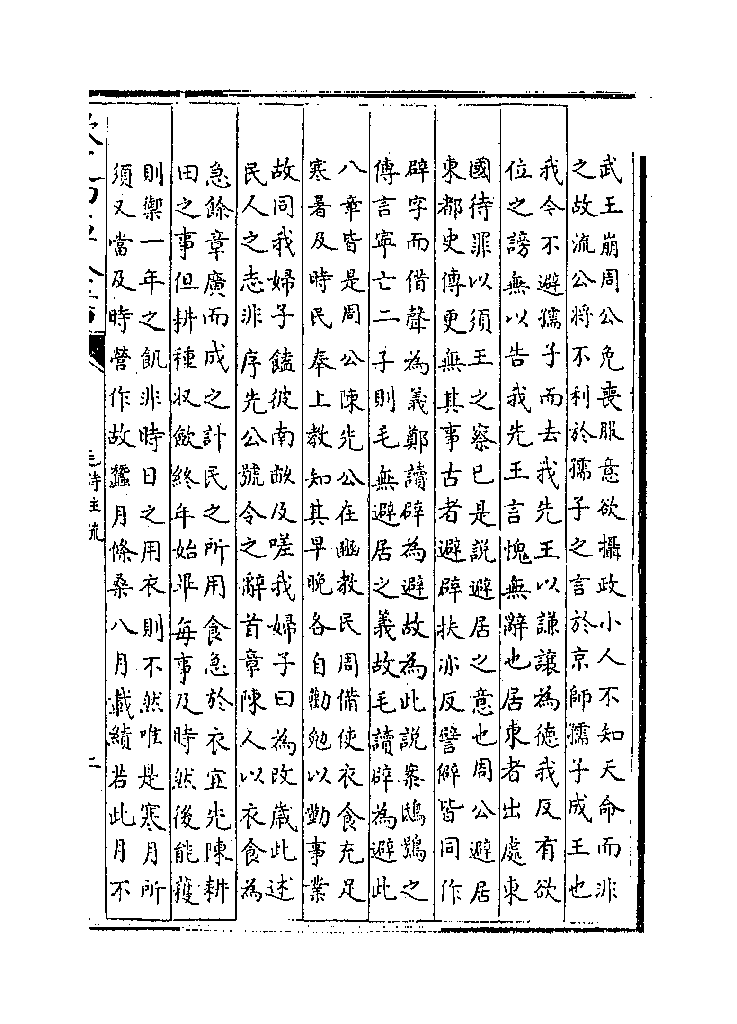 武王崩周公免喪服意欲攝政小人不知天命而非
之故流公將不利於孺子之言於京師孺子成王也
我今不避孺子而去我先王以謙讓為德我反有欲
位之謗無以告我先王言愧無辭也居東者出處東
國待罪以須王之察已是說避居之意也周公避居
東都史傳更無其事古者避辟扶亦反譬僻皆同作
辟字而借聲為義鄭讀辟為避故為此說案鴟鴞之
傳言寜亡二子則毛無避居之義故毛讀辟為避此
八章皆是周公陳先公在豳教民周備使衣食充足
寒暑及時民奉上教知其早晚各自勸勉以勤事業
故同我婦子饁彼南畝及嗟我婦子曰為改歲此述
民人之志非序先公號令之辭首章陳人以衣食為
急餘章廣而成之計民之所用食急於衣宜先陳耕
田之事但耕種収斂終年始畢每事及時然後能獲
則禦一年之飢非時日之用衣則不然唯是寒月所
須又當及時營作故蠶月條桑八月載績若此月不
毛詩注疏
二